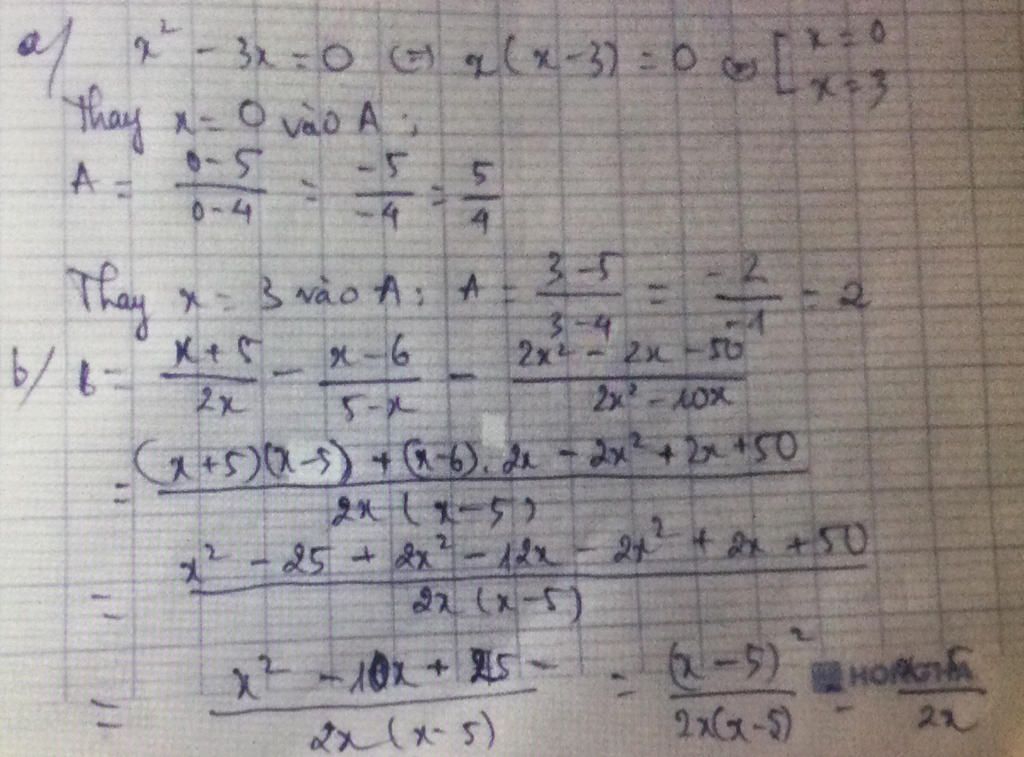 a/ x² - 3x = 0 (=) x(x-3) = 0 (=) [ x = 0
x = 3
Thay x = 0 vào A :
A = (0-5)/(0-4) = (-5)/(-4) = 5/4
Thay x = 3 vào A : A = (3-5)/(3-4) = (-2)/(-1) = 2
b/ B = (x+5)/(2x) - (x-6)/(5-x) - (2x² - 2x - 50)/(2x² - 10x)
= ((x+5)(x-5) + (x-6). 2x - 2x² + 2x + 50)/(2x (x-5))
= (x² - 25 + 2x² - 12x - 2x² + 2x + 50)/(2x (x-5))
= (x² - 10x + 25)/(2x (x-5)) = (x-5)²/(2x(x-5)) = /(2x)